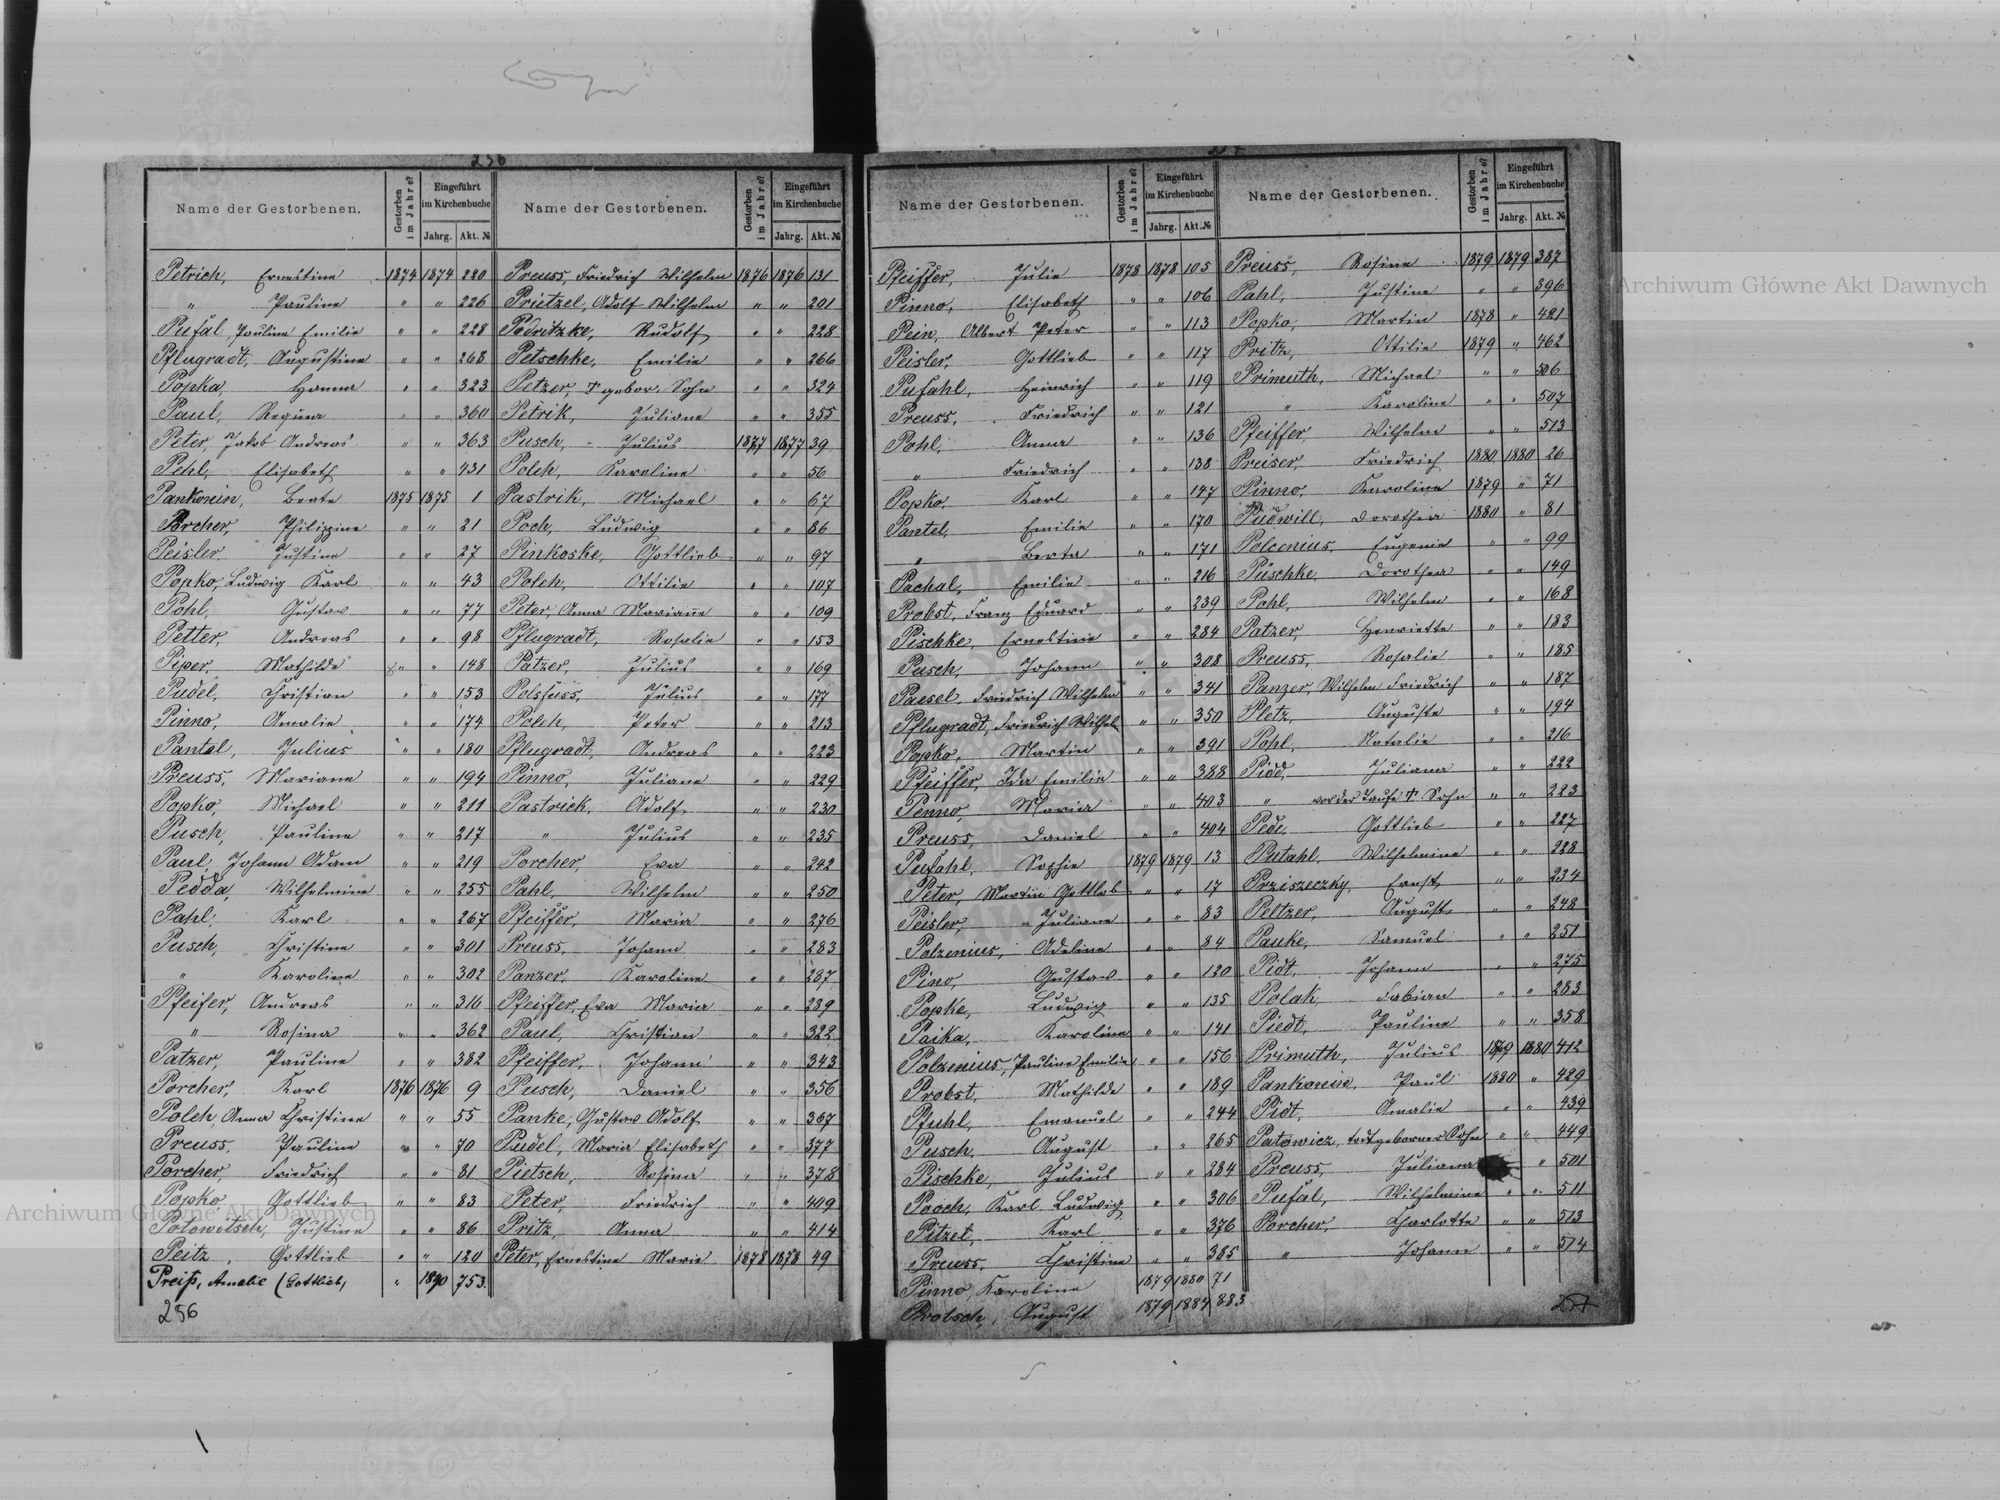 256
Name der Gestorbenen. Gestorben im Jahre? Eingeführt im Kirchenbuche Jahrg. Akt. №
Petrich, Ernestine 1874 1874 220
" Pauline " " 226
Pufal, Pauline Emilie " " 228
Pflugradt, Augustine " " 268
Popka, Hanna " " 323
Paul, Regina " " 360
Peter, Jakob Andreas " " 363
Pohl, Elisabeth " " 431
Pankonin, Beate 1875 1875 1
Porcher, Philippine " " 21
Peisler, Justine " " 27
Popko, Ludwig Karl " " 43
Pohl, Gustav " " 77
Petter, Andreas " " 98
Piper, Mathilde " " 148
Pudel, Christian " " 153
Pinno, Amalie " " 174
Pantel, Julius " " 180
Preuss, Mariane " " 194
Popko, Michael " " 211
Pusch, Pauline " " 217
Paul, Johann Adam " " 219
Pedda, Wilhelmine " " 255
Pahl, Karl " " 267
Pusch, Christine " " 301
" Karoline " " 302
Pfeifer, Andreas " " 316
" Rosina " " 362
Patzer, Pauline " " 382
Porcher, Karl 1876 1876 9
Polch, Anna Christine " " 55
Preuss, Pauline " " 70
Porcher, Friedrich " " 81
Popko, Gottlieb " " 83
Potowitsch, Justine " " 86
Peitz, Gottlieb " " 120
Preiß, Amalie (Gottlieb, " 753
256
Name der Gestorbenen. Gestorben im Jahre? Eingeführt im Kirchenbuche Jahrg. Akt. №
Preuss, Friedrich Wilhelm 1876 1876 131
Prietzel, Adolf Wilhelm " " 201
Podritzke, Rudolf " " 228
Petschke, Emilie " " 266
Petzer, † gebor. Sohn " " 324
Petrik, Juliane " " 355
Pusch, Julius 1877 1877 39
Polch, Karoline " " 56
Pastrik, Michael " " 67
Poch, Ludwig " " 86
Pinkoske, Gottlieb " " 97
Polch, Ottilie " " 107
Peter, Anna Mariane " " 109
Pflugradt, Rosalie " " 153
Patzer, Julius " " 169
Polsfuss, Julius " " 177
Polch, Peter " " 213
Pflugradt, Andreas " " 223
Pinno, Juliane " " 229
Pastrick, Adolf " " 230
" Julius " " 235
Porcher, Eva " " 242
Pahl, Wilhelm " " 250
Pfeiffer, Maria " " 276
Preuss, Johann " " 283
Panzer, Karoline " " 287
Pfeiffer, Eva Maria " " 289
Paul, Christian " " 322
Pfeiffer, Johann " " 343
Pusch, Daniel " " 356
Panke, Gustav Adolf " " 367
Pudel, Maria Elisabeth " " 377
Pietsch, Rosina " " 378
Peter, Friedrich " " 409
Pritz, Anna " " 414
Peter, Ernestine Marie 1878 1878 49
Name der Gestorbenen. Gestorben im Jahre? Eingeführt im Kirchenbuche Jahrg. Akt. №
Pfeiffer, Julie 1878 1878 105
Pinno, Elisabeth " " 106
Pein, Albert Peter " " 113
Peisler, Gottlieb " " 117
Pufahl, Heinrich " " 119
Preuss, Friedrich " " 121
Pohl, Anna " " 136
" Friedrich " " 138
Popko, Karl " " 147
Pantel, Emilie " " 170
" Berta " " 171
Pachal, Emilie " " 216
Probst, Franz Eduard " " 239
Pischke, Ernestine " " 284
Pusch, Johann " " 308
Paesel, Friedrich Wilhelm " " 341
Pflugradt, Friedrich Wilhelm " " 350
Popko, Martin " " 391
Pfeiffer, Ida Emilie " " 388
Penno, Maria " " 403
Preuss, Daniel " " 404
Pufahl, Sophie 1879 1879 13
Peter, Martin Gottlob " " 17
Peisler, Juliane " " 83
Polzenius, Adeline " " 84
Pino, Gustav " " 120
Popke, Ludwig " " 135
Paika, Karoline " " 141
Polzenius, Pauline Emilie " " 156
Probst, Mathilde " " 189
Pfuhl, Emanuel " " 244
Pusch, August " " 265
Pischke, Julius " " 284
Pooch, Karl Ludwig " " 306
Pitzel, Karl " " 376
Preuss, Christine " " 385
Pinno, Karoline 1879 1880 71
Protsch, August 1879 1884 883
Name der Gestorbenen. Gestorben im Jahre? Eingeführt im Kirchenbuche Jahrg. Akt. №
Preuss, Rosine 1879 1879 387
Pahl, Justine " " 396
Popko, Martin 1878 " 421
Pritz, Ottilie 1879 " 462
Primuth, Michael " " 506
" Karoline " " 507
Pfeiffer, Wilhelm " " 513
Preiser, Friedrich 1880 1880 26
Pinno, Karoline 1879 " 71
Pudwill, Dorothea 1880 " 81
Polcenius, Eugenie " " 99
Püschke, Dorothea " " 149
Pohl, Wilhelm " " 168
Patzer, Henriette " " 183
Preuss, Rosalie " " 185
Panzer, Wilhelm Friedrich " " 187
Pletz, Auguste " " 194
Pohl, Natalie " " 216
Pidd, Juliana " " 222
" vor der Taufe † Sohn " " 223
Pede, Gottlieb " " 227
Putahl, Wilhelmine " " 228
Prziszeczky, Ernst " " 234
Peltzer, August " " 248
Pauke, Samuel " " 251
Pidt, Johann " " 275
Polak, Fabian " " 283
Piedt, Pauline " " 358
Primuth, Julius 1879 1880 412
Pankonin, Paul 1880 " 429
Pidt, Amalie " " 439
Patowicz, todtgeborner Sohn " " 449
Preuss, Juliana " 501
Pufal, Wilhelmine " " 511
Porcher, Charlotte " " 513
" Johann " " 514
257
Archiwum Główne Akt Dawnych
Archiwum Główne Akt Dawnych